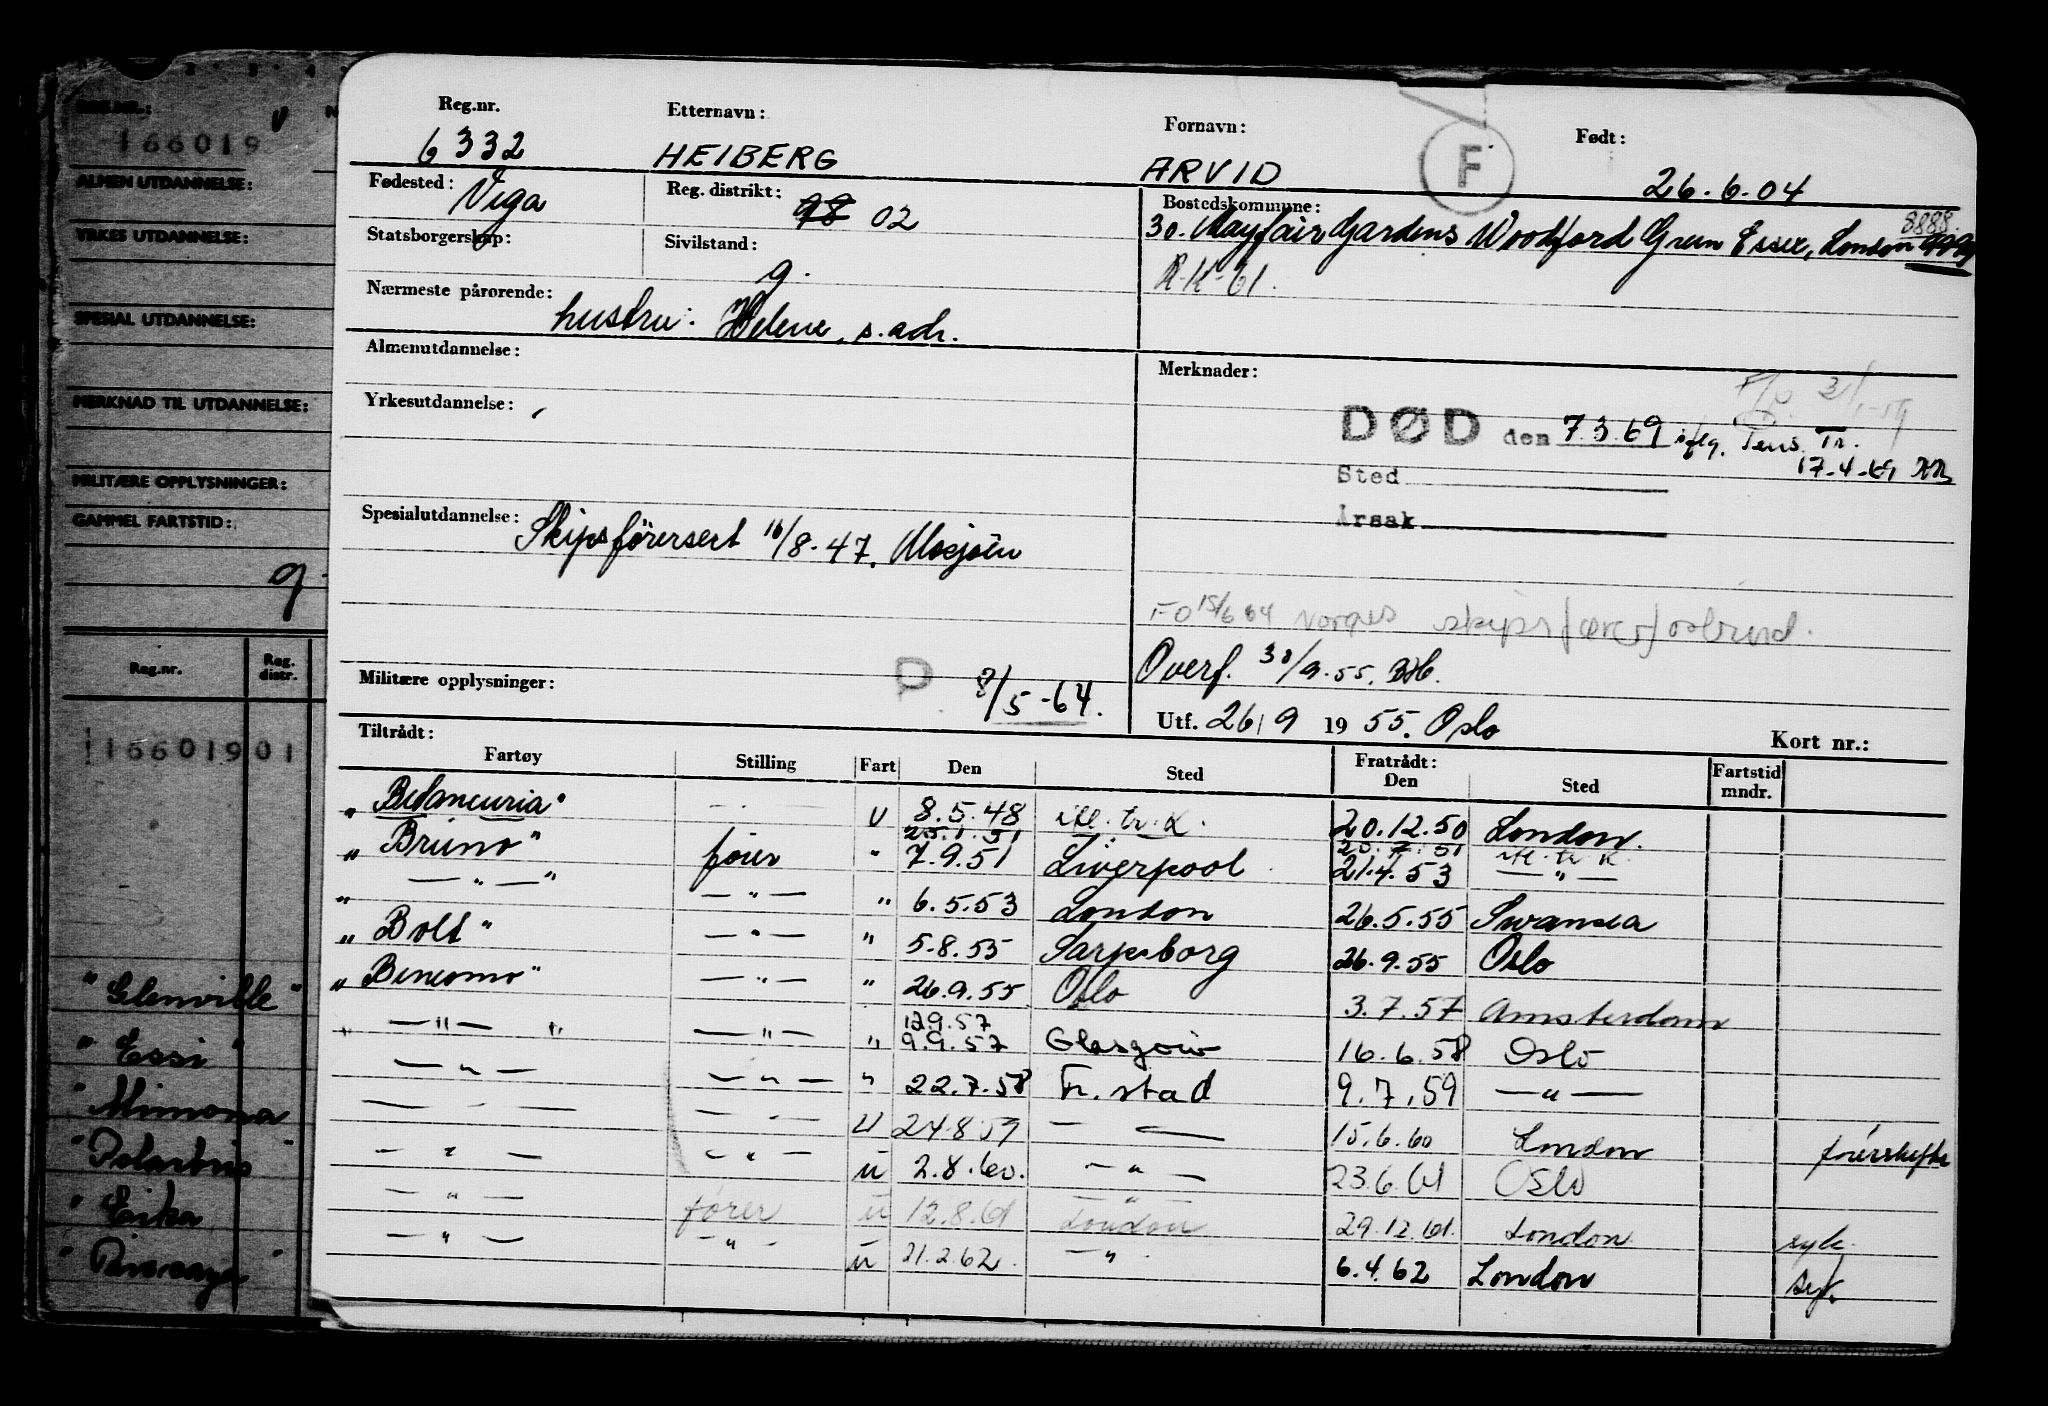 REG.NR.: V N
166019
ALMEN UTDANNELSE:
YRKES UTDANNELSE:
SPESIAL UTDANNELSE:
MERKNAD TIL UTDANNELSE:
MILITÆRE OPPLYSNINGER:
GAMMEL FARTSTID:
g
Reg.nr. Reg. distr.
16601901
"Glenville"
"Essi"
"Mimona
"Polarbris"
"Erika
Reg.nr. Etternavn: Fornavn: F Født:
6332 HEIBERG ARVID 26.6.04
Fødested: Vega Reg. distrikt: 98 02 Bostedskommune: 8888
Statsborgerskap: Sivilstand: g. 30. Mayfair Gardens Woodford Green Essex, London
R.K-61.
Nærmeste pårørende: hustru: Helene, s.adr.
Almenutdannelse: Merknader:
Yrkesutdannelse: DØD den 7.3.69 iflg. Pens. Tr.
17-4-69
Sted
Årsak
Spesialutdannelse: Skipsførersert 16/8-47. Mosjøen
FO 15/6 64 Norges skipsførerforbund.
Overf. 30/9-55.
Militære opplysninger: D 8/5-64. Utf. 26/9 1955. Oslo Kort nr.:
Tiltrådt: Fratrådt:
Fartøy Stilling Fart Den Sted Den Sted Fartstid mndr.
"Betancuria" — . — U 8.5.48 itl. tr. k. 20.12.50 London.
25.1.51 20.7.51 itl. tr. k.
"Bruno" fører " 7.9.51 Liverpool 21.4.53 — " —
" — " — " — " — " 6.5.53 London 26.5.55 Swansea
"Bolt" — " — " 5.8.55 Sarpsborg 26.9.55 Oslo
"Bencomo" — " — " 26.9.55 Oslo 3.7.57 Amsterdam
12.9.57
" — " — " — " — " 9.9.57 Glasgow 16.6.58 Oslo
— " — — " — " 22.7.58 Fr.stad 9.7.59 — " —
— — — " — U 24.8.59 — — 15.6.60 London førershefte
— " — — " — U 2.8.60. — " — 23.6.61 Oslo
— " — fører U 12.8.61 London 29.12.61. London syk.
— " — — " — U 21.2.62. — " — 6.4.62 London syk.